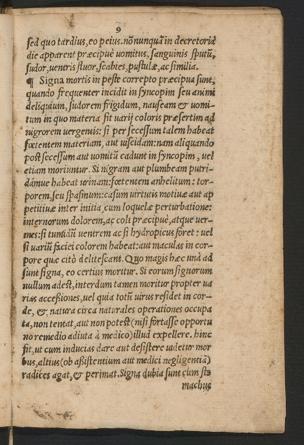 9
sed quo tardius, eo peius. nōnunquā in decretoriâ
die apparent præcipuè uomitus, sanguinis sputū,
sudor, uentris fluor, scabies, pustulæ, ac similia.
¶ Signa mortis in peste correpto præcipua sunt,
quando frequenter incidit in syncopim seu animi
deliquium, sudorem frigidum, nauseam & uomi-
tum in quo materia sit uarij coloris præsertim ad
nigrorem uergenris: si per secessum talem habeat
fœtentem materiam, aut uiscidam: nam aliquando
post secessum aut uomitū cadunt in syncopim, uel
etiam moriuntur. Si nigram aut plumbeam putri-
damue habeat urinam: fœtentem anhelitum: tor-
porem, seu spasmum: casum uirtutis motiuæ aut ap
petitiuæ inter initia, cum loquelæ perturbatione:
internorum dolorem, ac coli præcipuè, atque uer-
mes: si tumidū uentrem ac si hydropicus foret: uel
si uariū faciei colorem habeat: aut maculas in cor-
pore quæ citò delitescant. Quo magis hæc unà ad
sunt signa, eo certius moritur. Si eorum signorum
nullum adest, interdum tamen moritur propter ua
rias accessiones, uel quia totū uirus residet in cor-
de, & natura circa naturales operationes occupa
ta, non tentat, aut non potest (nisi fortasse opportu
no remedio adiuta à medico) illud expellere. hinc
fit, ut cum inducias dare aut desistere uidetur mor
bus, altius (ob assistentium aut medici negligentiā)
radices agat, & perimat. Signa dubia sunt cùm sto
machus